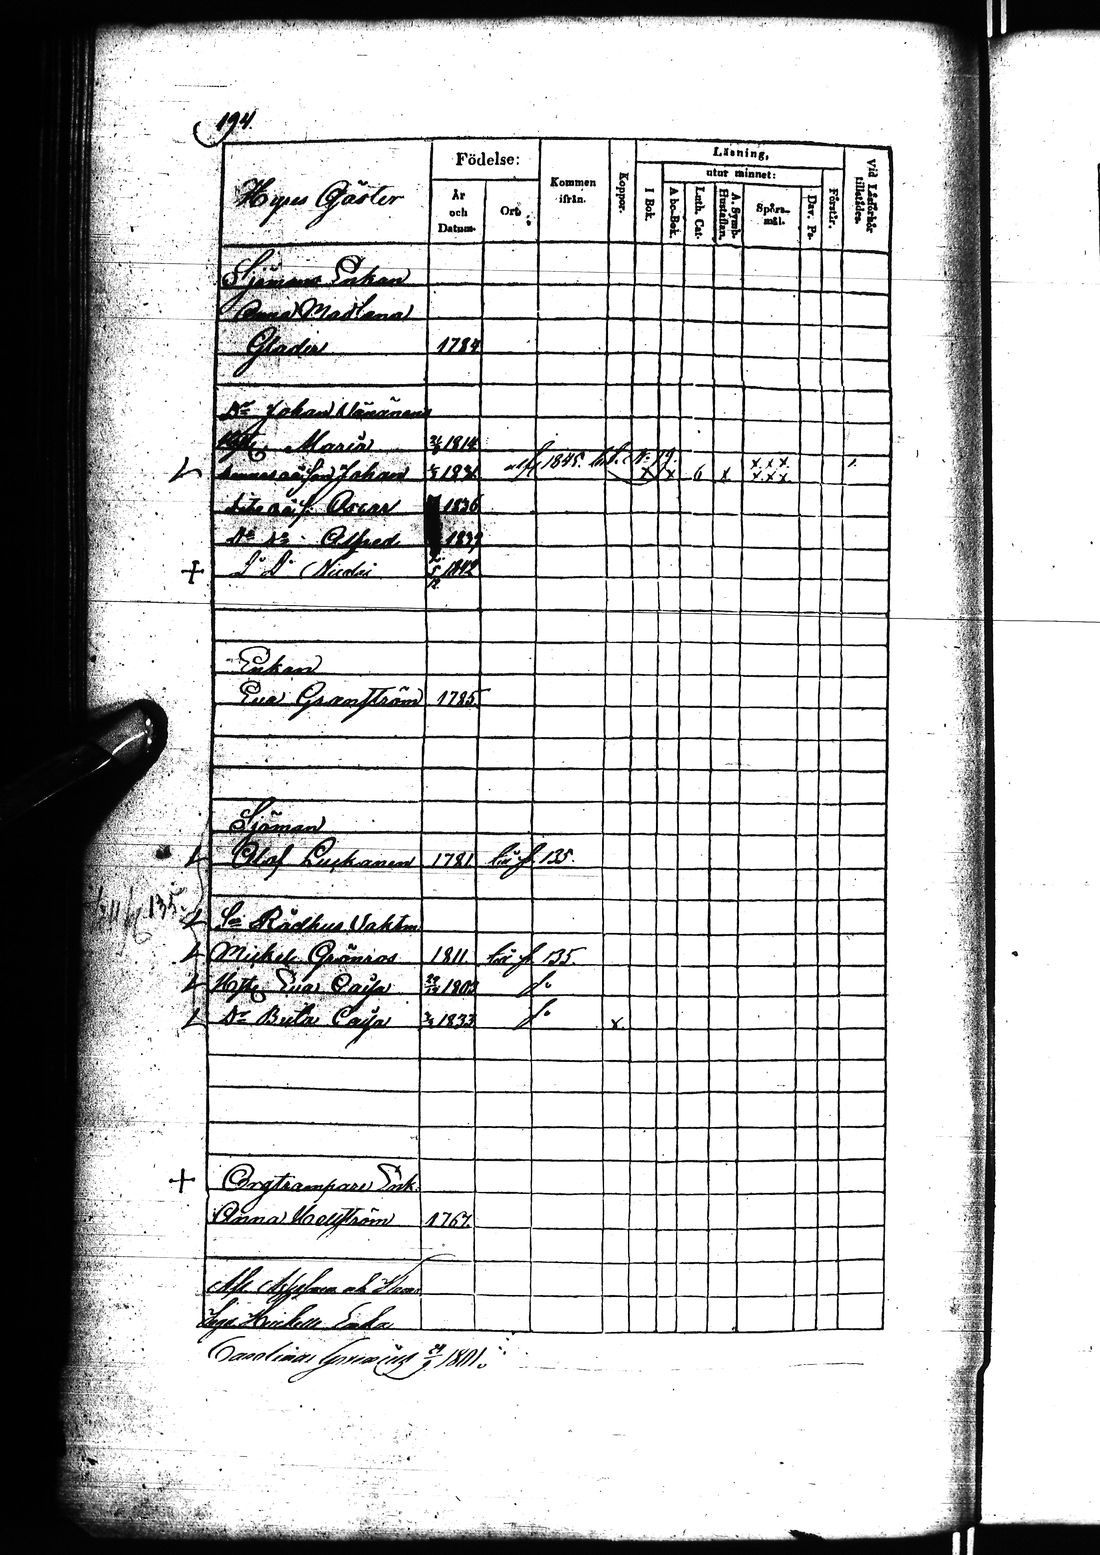 194.
Hyres Gäster
Födelse:
År och Datum.
Ort
Kommen ifrån.
Koppor.
Läsning,
utur minnet:
I Bok.
A bc-Bok.
Luth. Cat.
A. Symb. Hustaflan.
Spörsmål.
Dav. Ps.
Förstår.
Vid Läsförhör tillstädes.
Sjömans Enkan
Anna Madlena
Glader 1784
Dr Johan Väänänens
Maria 1814
Johan 1831 1845. x x 6 x x x x x x x
Oscar 1836
Do Do Alfred 1839
+ Do Do Nicolai 1842
Enkan
Eva Granström 1785
Sjöman
Olof Luckanen 1781 135.
135
Rådhus Vaktm
Mickel Grönroos 1811 135.
Hust Eva Caisa 1802 do
Dr Beata Caisa 1833 do x
+ Orgtrampare Enk.
Anna Hellström 1767.
Enka
Carolina 1801